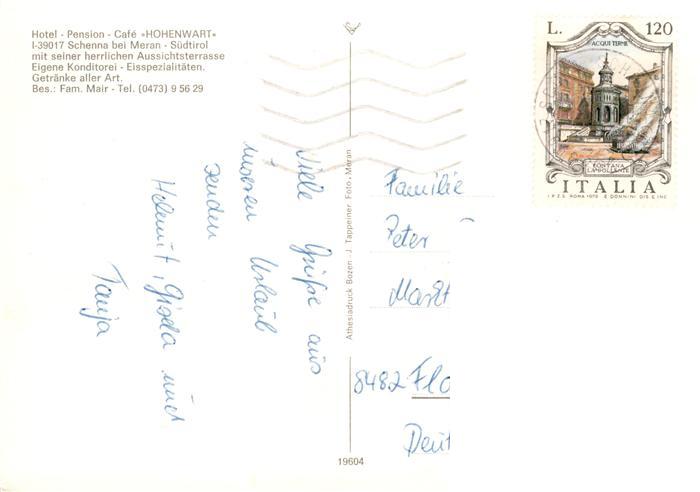 Hotel - Pension - Café »HOHENWART«
I-39017 Schenna bei Meran - Südtirol
mit seiner herrlichen Aussichtsterrasse
Eigene Konditorei - Eisspezialitäten.
Getränke aller Art.
Bes.: Fam. Mair - Tel. (0473) 9 56 29
Viele Grüße aus
unseren Urlaub
senden
Helmut, Gisela und
Tanja
Athesiadruck Bozen J. Tappeiner Foto, Meran
19604
L. 120
ACQUI TERME
FONTANA
LAMPOLLENTE
ITALIA
I.P.Z.S. ROMA 1979 E. DONNINI DIS. E INC.
Familie
Peter
Markt
8482 Flo
Deut